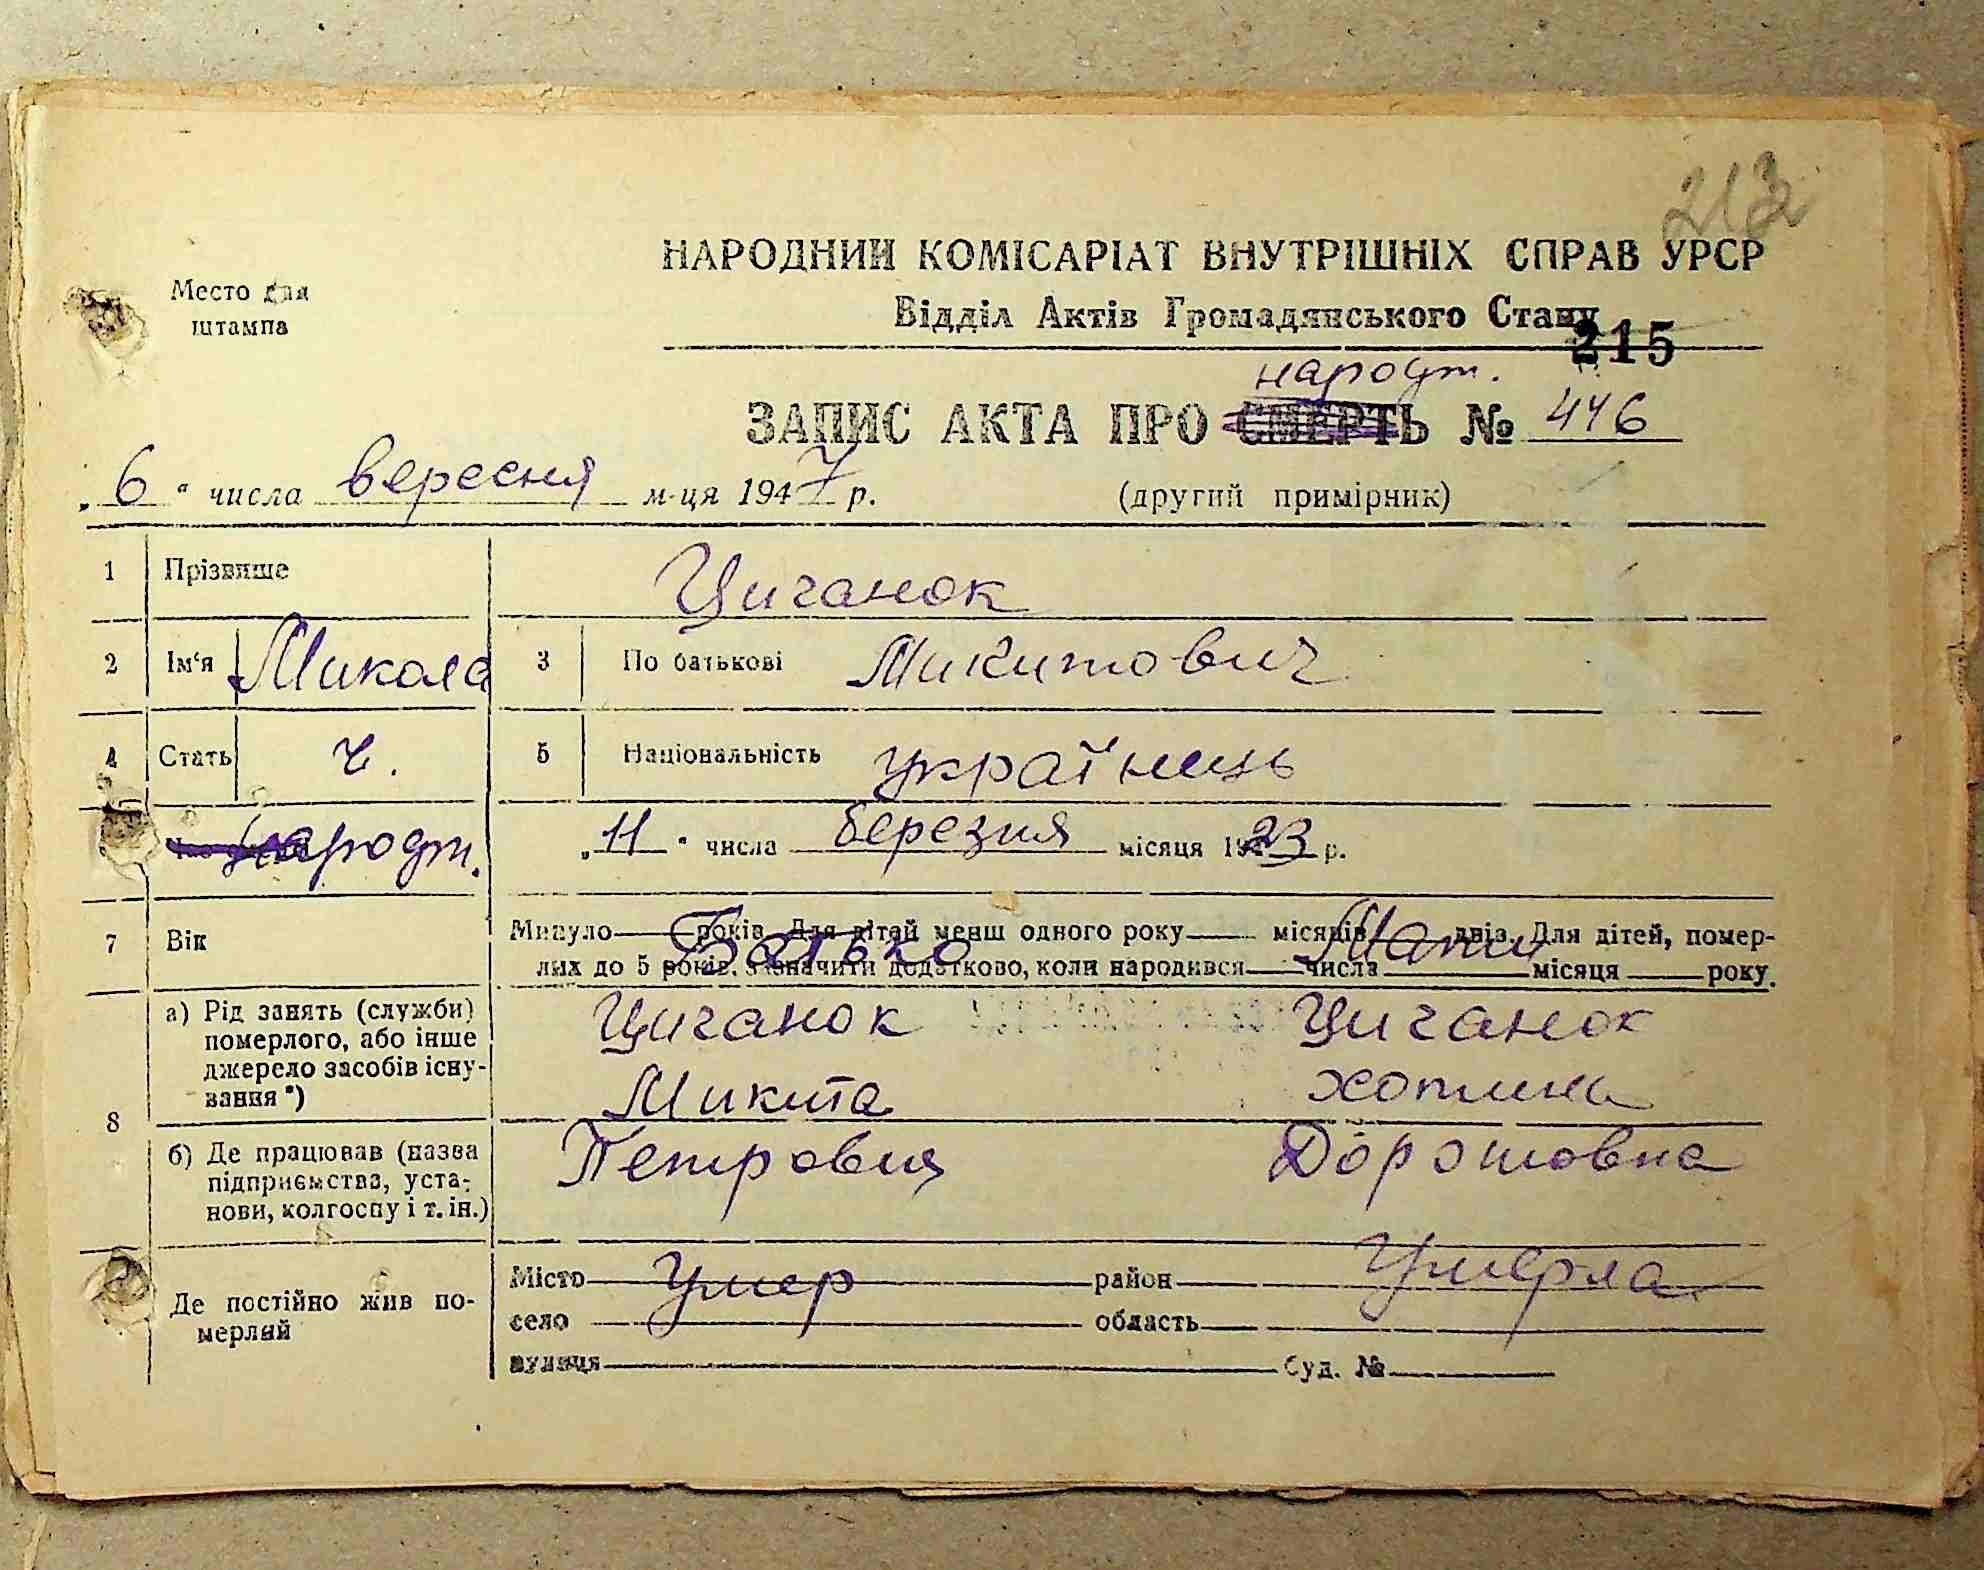 213
Место для
штампа
НАРОДНИЙ КОМІСАРІАТ ВНУТРІШНІХ СПРАВ УРСР
Відділ Актів Громадянського Стану
215
народт.
ЗАПИС АКТА ПРО СМЕРТЬ № 446
„6“ числа вересня м-ця 1947 р. (другий примірник)
1 Прізвище Циганок
2 Ім‘я Микола 3 По батькові Микитович
4 Стать ч. 5 Національність українець
народт. „11“ числа березня місяця 1923 р.
7 Вік Минуло років. Для дітей менш одного року місяців двіз. Для дітей, помер-
лих до 5 років, зазначити додатково, коли народився числа місяця року.
Батько Мати
8 а) Рід занять (служби)
померлого, або інше
джерело засобів існу-
вання *)
Циганок Циганок
Микита Хотина
б) Де працював (назва
підприємства, уста-
нови, колгоспу і т. ін.)
Петрович Дорошовна
Де постійно жив по-
мерлий
Місто Умер район Умерла
село область
вулиця Буд. №